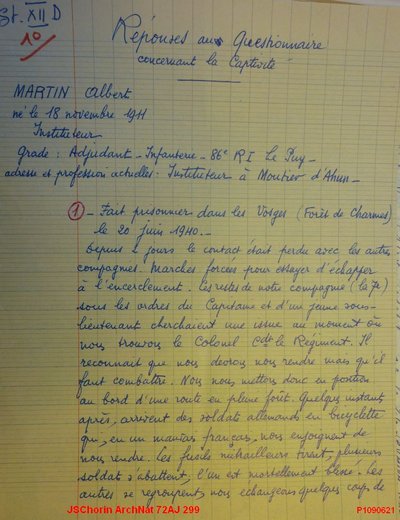 St. XII D
1°
Réponses au Questionnaire
concernant la Captivité
MARTIN Albert
né le 18 novembre 1911
Instituteur
Grade : Adjudant - Infanterie - 86e R I Le Puy -
adresse et profession actuelles : Instituteur à Moutier d'Ahun -
1 - Fait prisonnier dans les Vosges (Forêt de Charmes)
le 20 juin 1940. -
Depuis 2 jours le contact était perdu avec les autres
compagnies. Marches forcées pour essayer d'échapper
à l'encerclement. Les restes de notre compagnie (la 7e)
sous les ordres du Capitaine et d'un jeune sous-
lieutenant cherchaient une issue au moment où
nous trouvons le Colonel Cdt le Régiment. Il
reconnait que nous devons nous rendre mais qu'il
faut combattre. Nous nous mettons donc en position
au bord d'une route en pleine forêt. Quelques instants
après, arrivent des soldats allemands en bicyclette
qui, en un mauvais français, nous enjoignent de
nous rendre. Les fusils mitrailleurs tirent, plusieurs
soldats s'abattent, l'un est mortellement blessé. Les
autres se regroupent, nous échangeons quelques coups de
JSChorin ArchNat 72AJ 299
P1090621